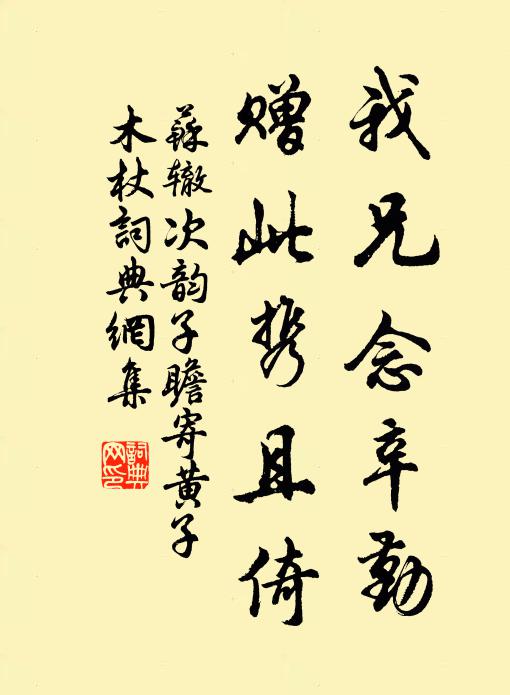 我兄念辛勤
赠此携且倚
蘇辙次韵子瞻寄黄子
木杖詞典網集
詞典网印